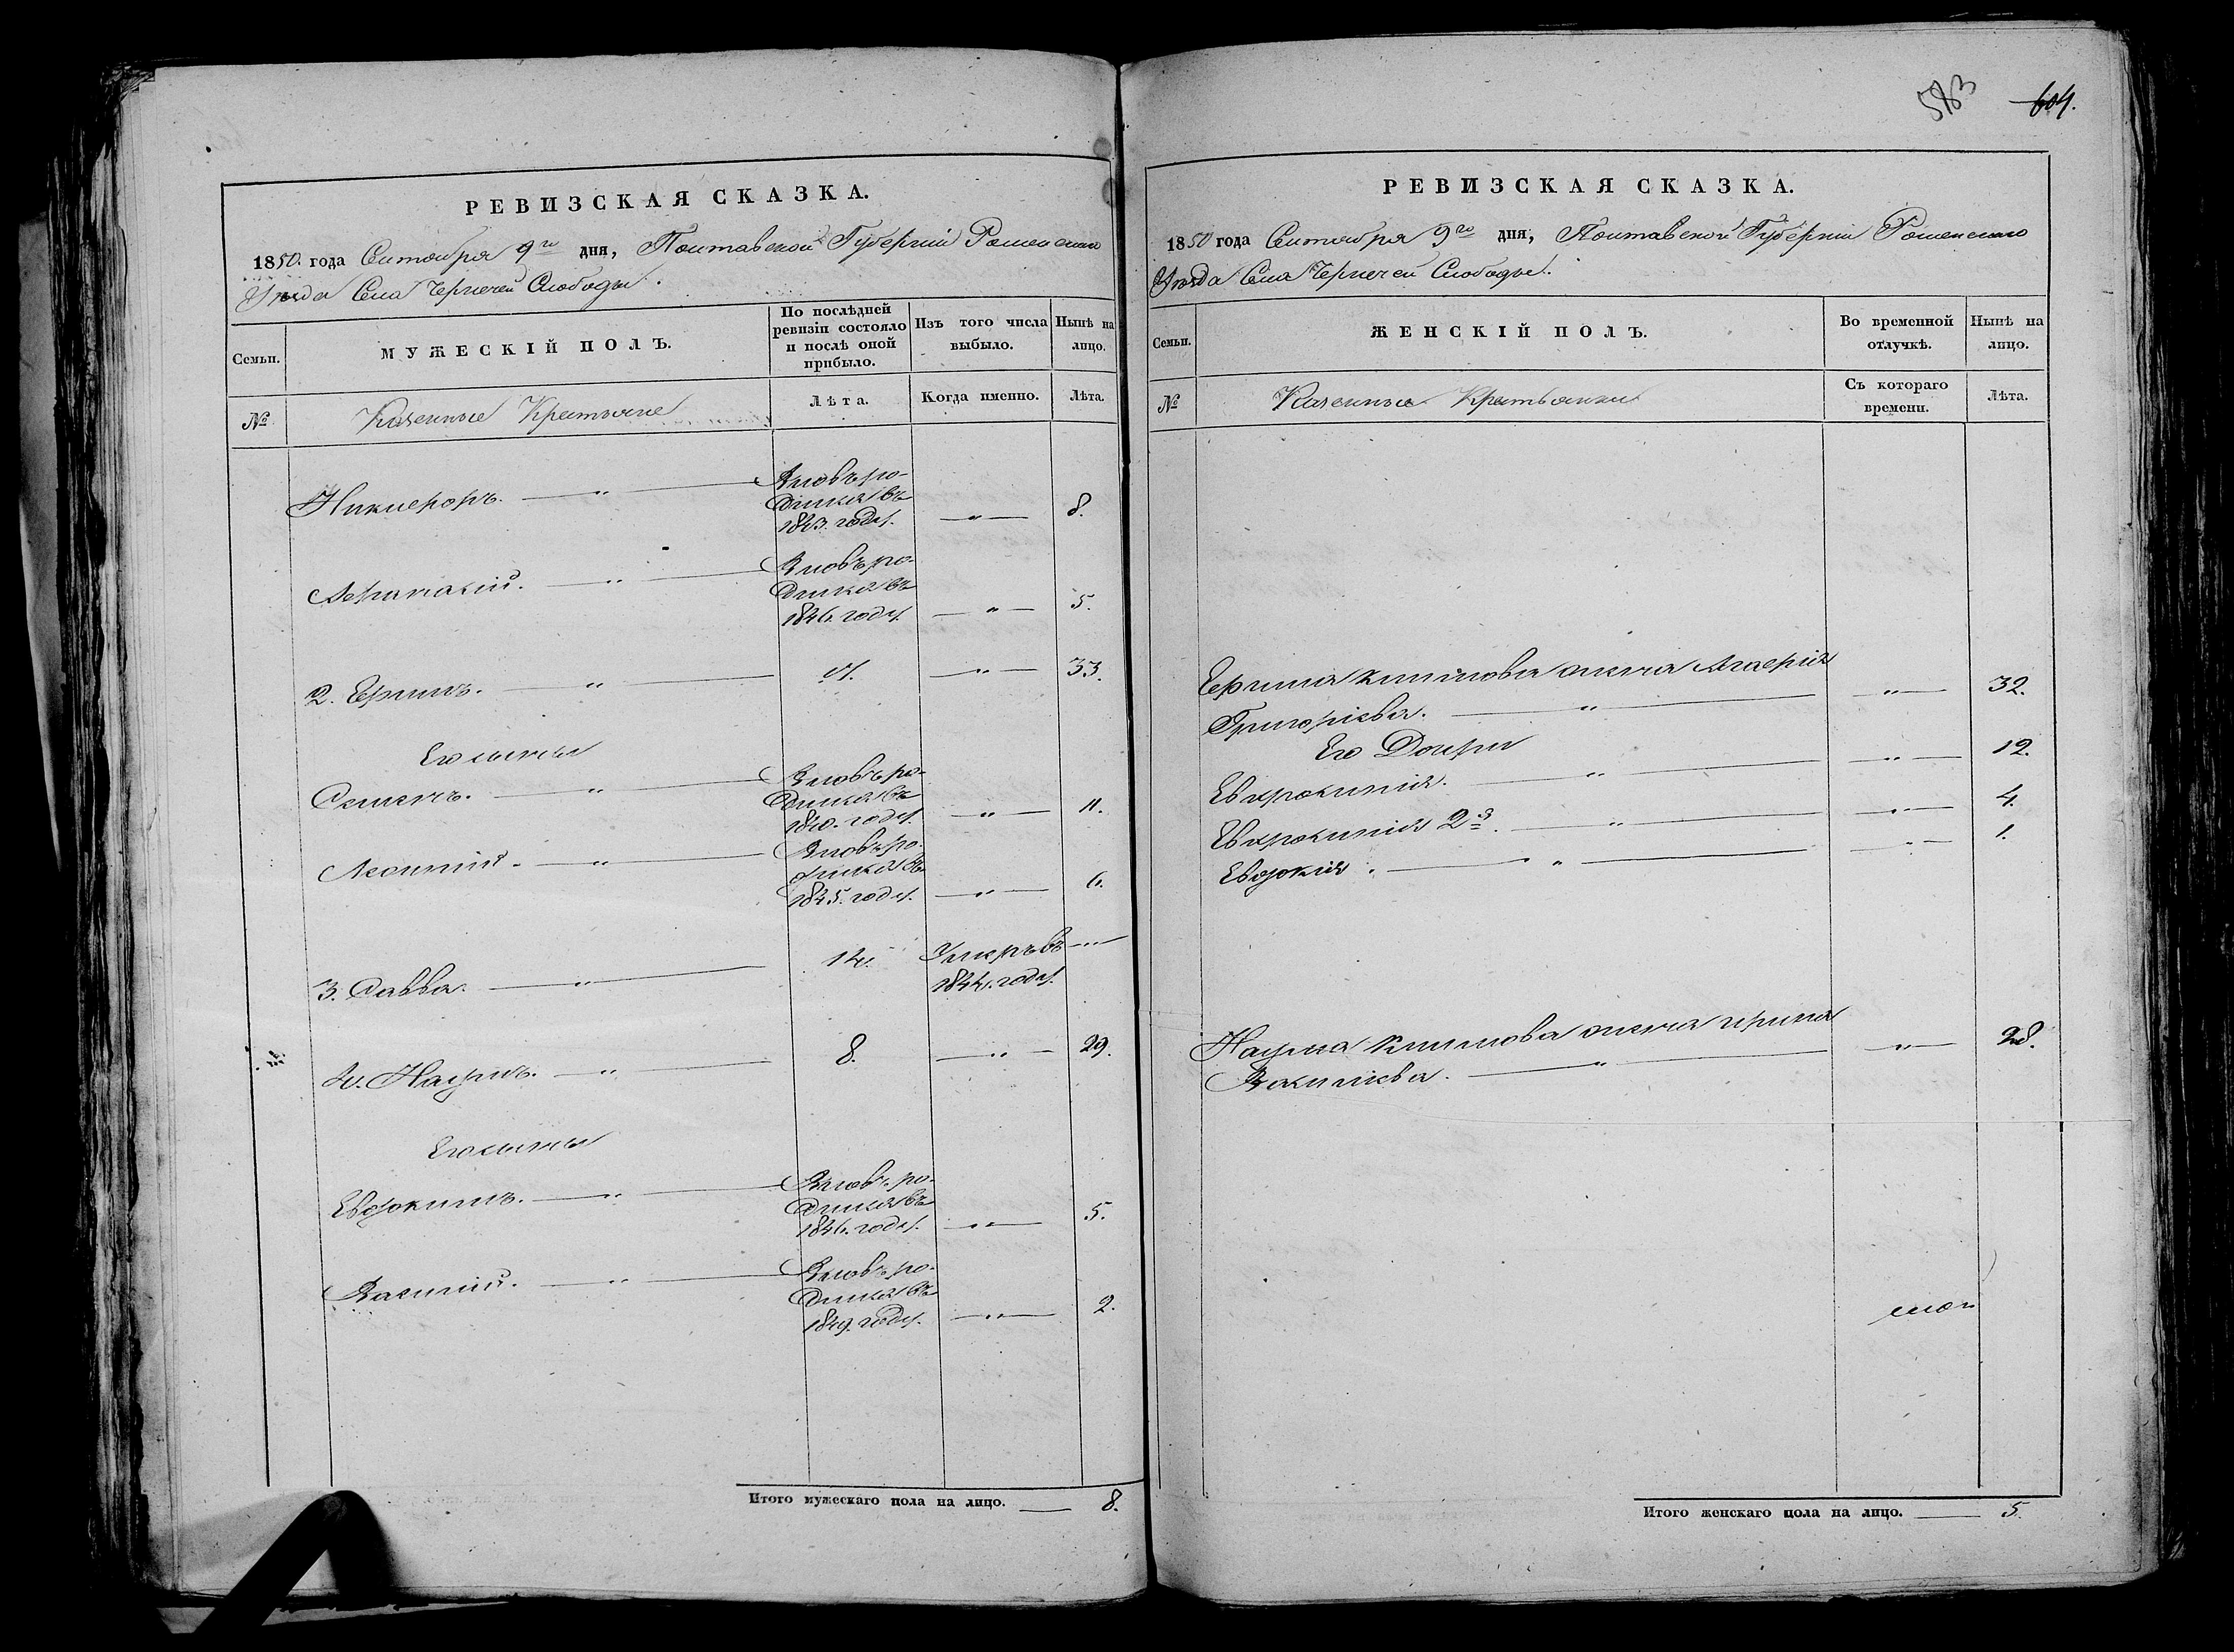 РЕВИЗСКАЯ СКАЗКА.
1850. года Сентября 9го дня, Полтавской Губерніи Роменскаго
Уѣзда Села Чернечей Слободы.
Семьи.
МУЖЕСКІЙ ПОЛЪ.
По послѣдней
ревизіи состояло
и послѣ оной
прибыло.
Изъ того числа
выбыло.
Нынѣ на
лицо.
№
Казенные Крестьяне
Лѣта.
Когда именно.
Лѣта.
Никифоръ. — „ — Вновь ро-
дился въ
1843. году. — „ — 8.
Афанасій. — „ — Вновь ро-
дился въ
1846. году. — „ — 5.
2. Ефимъ. — „ — — „ — 33.
Его сыны
Семенъ. — „ — Вновь ро-
дился въ
1840. году. — „ — 11.
Леонтій. — „ — Вновь ро-
дился въ
1845. году. — „ — 6.
3. Савва. — „ — 14. Умеръ въ — „ —
1844. году.
4. Наумъ. — „ — 8. — „ — 29.
Его сыны
Евдокимъ. — „ — Вновь ро-
дился въ
1846. году. — „ — 5.
Василій. — „ — Вновь ро-
дился въ
1849. году. — „ — 2.
Итого мужескаго пола на лицо. — 8.
583 604.
РЕВИЗСКАЯ СКАЗКА.
1850 года Сентября 9го дня, Полтавской Губерніи Роменскаго
Уѣзда Села Чернечей Слободы.
Семьи.
ЖЕНСКІЙ ПОЛЪ.
Во временной
отлучкѣ.
Нынѣ на
лицо.
№
Казенные Крестьянки
Съ котораго
времени.
Лѣта.
Ефима Климова жена Агафія
Григоріева. — „ — — „ — 32.
Его Дочери
Евфросинія. — „ — — „ — 12.
Евфросинія 2я. — „ — — „ — 4.
Евдокія. — „ — — „ — 1.
Наума Климова жена Ирина
Васильева. — „ — — „ — 28.
Итого женскаго пола на лицо. — 5.